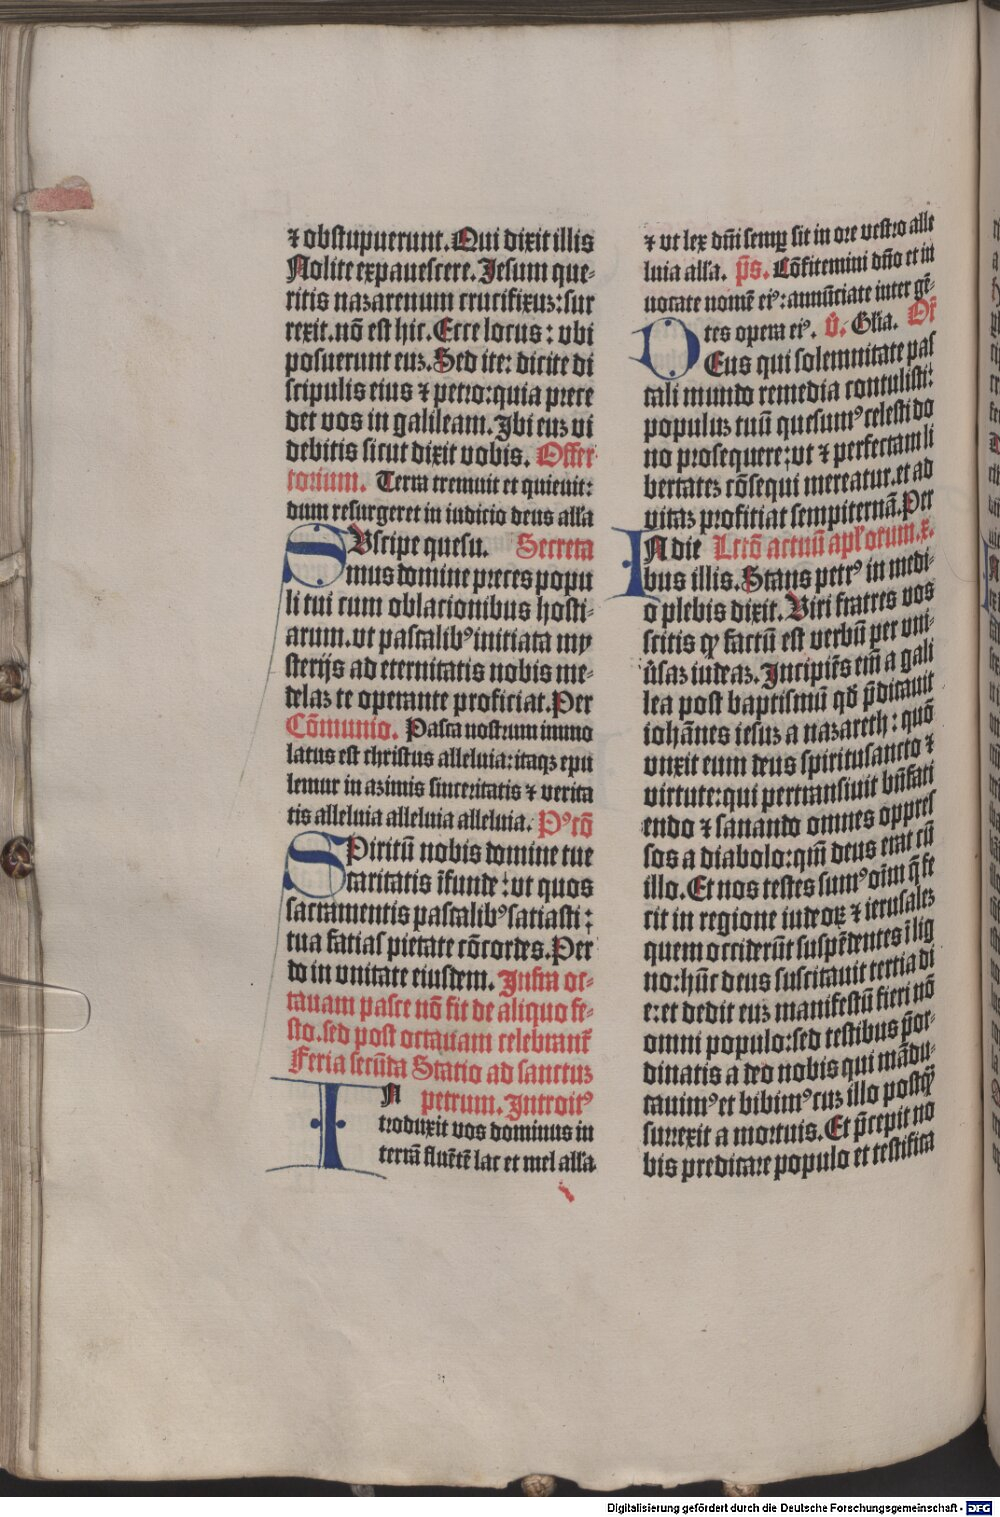 ⁊ obstupuerunt. Qui dixit illis
Nolite expauescere. Jesum que-
ritis nazarenum crucifixuz: sur
rexit. nō est hic. Ecce locus: vbi
posuerunt euz. Sed ite: dicite di
scipulis eius ⁊ petro: quia prece
det vos in galileam. Jbi euz vi
debitis sicut dixit vobis. Offer
torium. Terra tremuit et quieuit:
dum resurgeret in iudicio deus alla
SUscipe quesu. Secreta
mus domine preces popu
li tui cum oblacionibus hosti-
arum. vt pascalibꝰ initiata my
sterijs ad eternitatis nobis me-
delaz te operante proficiat. Per
Cōmunio. Pasca nostrum immo
latus est christus alleluia: itaqz epu
lemur in azimis sinceritatis ⁊ verita
tis alleluia alleluia alleluia. Pꝰcō
SPiritū nobis domine tue
caritatis īfunde: vt quos
sacramentis pascalibꝰ satiasti:
tua facias pietate cōcordes. Per
do in vnitate eiusdem. Jnfra oc-
tauam pasce nō fit de aliquo fe-
sto. sed post octauam celebrant̄
Feria secūda Statio ad sanctuz
IN petrum. Jntroitꝰ
troduxit vos dominus in
terrā fluētē lac et mel alla
⁊ vt lex dn̄i semꝑ sit in ore vestro alle
luia alla. p̄s. Cōfitemini dn̄o et in
uocate nomē eiꝰ: annūciate inter gē-
tes opera eiꝰ. v̄. Glīa. Or̄
DEus qui solemnitate pas
cali mundo remedia contulisti:
populuz tuū quesumꝰ celesti do
no prosequere: vt ⁊ perfectam li
bertatez cōsequi mereatur. et ad
vitaz proficiat sempiternā. Per
IN die Lctō actuū apl'orum. x.
bus illis. Stans petrꝰ in medi-
o plebis dixit. Viri fratres vos
scitis qꝫ factū est verbū per vni-
ūsaz iudeaz. Jncipiēs em̄ a gali
lea post baptismū qd̄ p̄dicauit
iohānes iesuz a nazareth: quō
vnxit eum deus spiritusancto ⁊
virtute: qui pertransiuit bn̄faci
endo ⁊ sanando omnes oppres
sos a diabolo: qm̄ deus erat cū
illo. Et nos testes sumꝰ oīm q̄ fe
cit in regione iudeoꝝ ⁊ ierusalez
quem occiderūt suspēdentes ī lig
no: hūc deus suscitauit tertia di
e: et dedit euz manifestū fieri nō
omni populo: sed testibus p̄or-
dinatis a deo nobis qui mādu-
cauimꝰ et bibimꝰ cuz illo postqꝫ
surrexit a mortuis. Et p̄cepit no
bis predicare populo et testifica
Digitalisierung gefördert durch die Deutsche Forschungsgemeinschaft - DFG